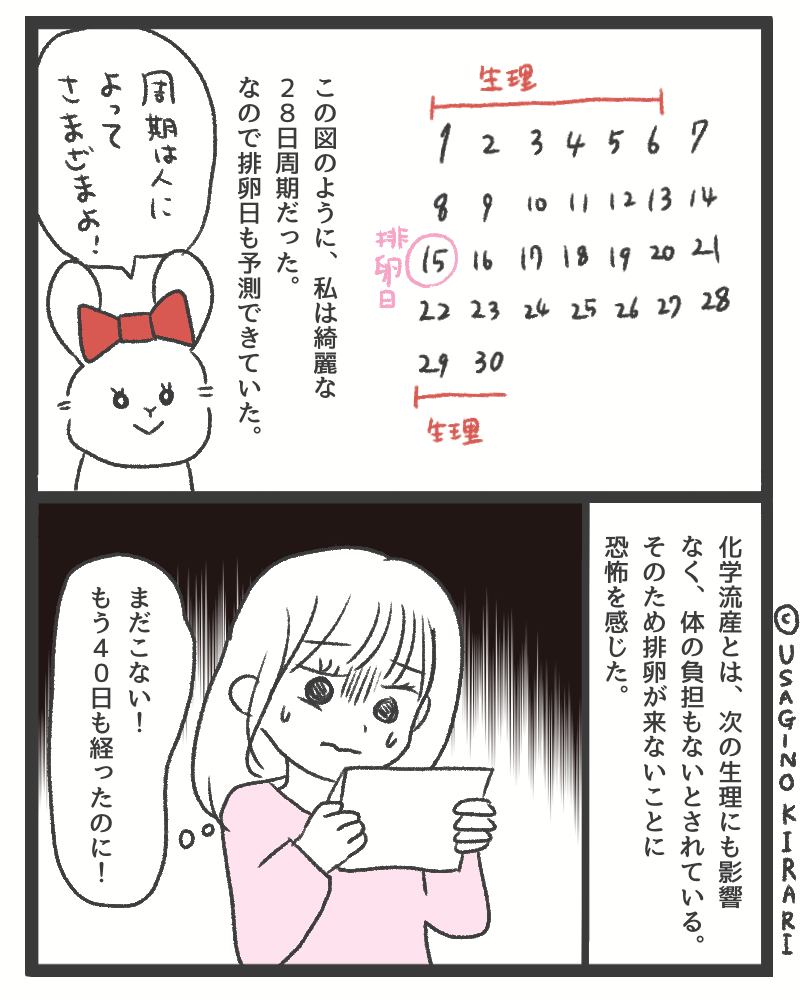 生理
1 2 3 4 5 6 7
8 9 10 11 12 13 14
排卵日
15 16 17 18 19 20 21
22 23 24 25 26 27 28
29 30
生理
この図のように、私は綺麗な
28日周期だった。
なので排卵日も予測できていた。
周期は人に
よって
さまざまよ!
化学流産とは、次の生理にも影響
なく、体の負担もないとされている。
そのため排卵が来ないことに
恐怖を感じた。
まだこない!
もう40日も経ったのに!
© USAGINO KIRARI